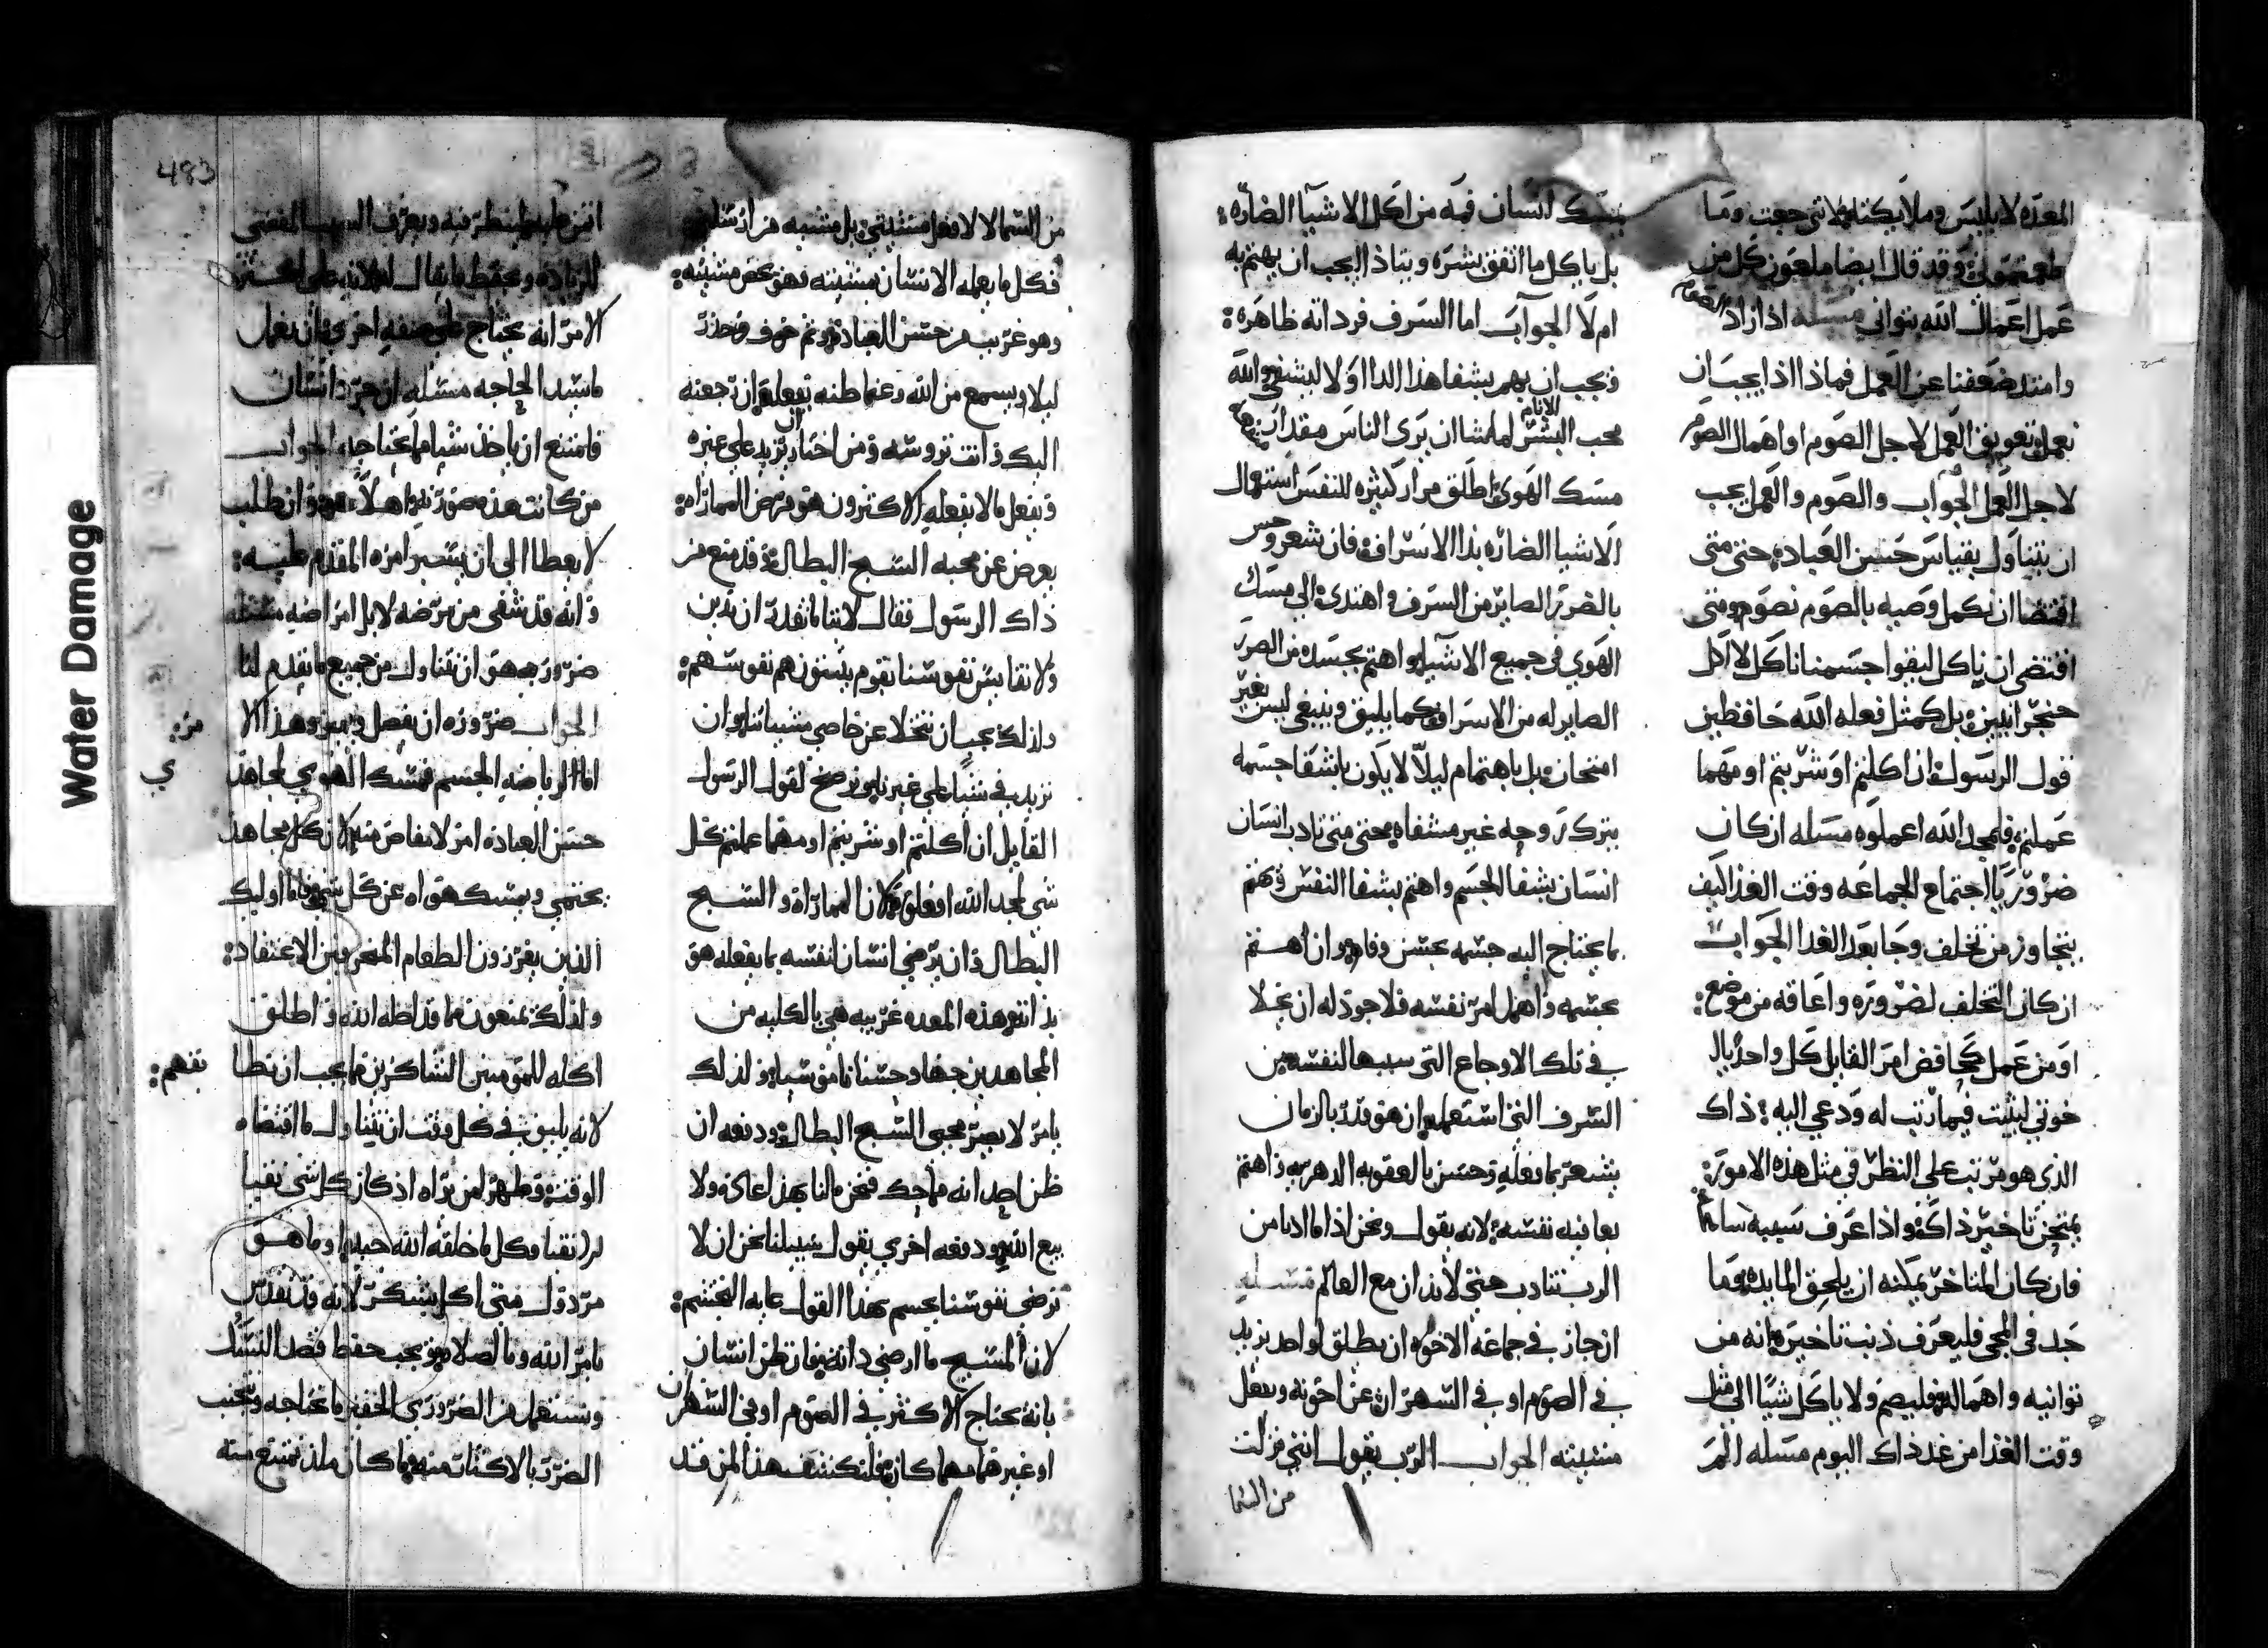 المعده لابليس وملايكته لاني جعت وما
اطعمتموني وقد قال ايضا ملعون كل من
عمل اعمال الله بتواني مسله اذا زاد الصوم
وامتد ضعفنا عن العمل فماذا اذا يجب ان
نعمل تعويق العمل لاجل الصوم او اهمال الصوم
لاجل العمل الجواب والصوم والعمل يجب
ان يتناول بقياس حسن العباده حتى متى
اقتضا ان نكمل وصيه بالصوم نصوم ومتى
اقتضى ان ياكل ليقوا جسمنا ناكل لا اكل
حنجرانيين بل كمثل فعله الله حافظين
قول الرسول ان اكلتم او شربتم او مهما
عملتم فلمجد الله اعملوه مسله ان كان
ضروريا اجتماع الجماعه وقت الغذا كيف
يتجاوز من تخلف وجا بعد الغدا الجواب
ان كان التخلف لضروره واعاقه من موضع
او من عمل كحافض امر القايل كل واحد يال
خوتي ليثبت فيما رتب له ودعي اليه ذاك
الذي هو مرتب على النظر في مثل هذه الامور
يمتحن تاخير ذاك واذا عرف سببه سامح
فان كان المتاخر يمكنه ان يلحق المايده وما
جد في المجي فليعرف ذنب تاخيره انه من
توانيه واهماله فليصم ولا ياكل شيا الى مثل
وقت الغذا من غد ذاك اليوم مسله الم
يمسك انسان فمه من اكل الاشيا الضاره
بل ياكل ما اتفق بشره ويتاذا ايجب ان يهتم به
ام لا الجواب اما السرف فرداته ظاهره
فيجب ان يهم بشفا هذا الدا اولا ليشفي والله
محب البشر للانام لما شا ان يرى الناس مقدار
مسك الهوى اطلق مرار كثيره للنفس استعمال
الاشيا الضاره بذا الاسراف فان شعر وحس
بالضرر الصاير من السرف واهتدى الى مسك
الهوي في جميع الاشيا واهتم بجسده من الضرر
الصاير له من الاسراف كما يليق وينبغي ليس بغير
امتحان بل باهتمام ليلا لا يكون باشفا جسمه
يترك روحه غير مشفاه حتى متى تادب انسان
انسان بشفا الجسم واهتم بشفا النفس فهتم
بما يحتاج اليه جسمه بحسن وفا وان اهتم
بجسمه واهمل امر نفسه فلاجود له ان يخلا
في تلك الاوجاع التي سببها لنفسه من
السرف الذي استعمله ان هو قد بالزمان
يشعر بما يفعله وحسن بالعقوبه الدهريه واهتم
بعافيه نفسه لانه يقول ونحن اذا ما ادبنا من
الرب نتادب حتى لا ندان مع العالم مسله
ان جاز في جماعة الاخوه ان يطلق لواحد يزيد
في الصوم او في السهر ان عن اخوته ويفعل
مشيته الجواب الرب يقول انني نزلت
من السما
483
من السما لا لافعل مشيتي بل مشيه من ارسلني
فكل ما يعمله الانسان بمشيته فهو بعض مشيته
وهو غريب من حسن العباده وثم خوف وحذر
ليلا يسمع من الله وعما طنه بفعله ان رجعته
اليك وانت تروسه ومن اختار ان يزيد على غيره
ويفعل ما لا يفعله الاكثرون هو مرض المماراه
يعرض عن محبه السبح البطال وقد منع من
ذاك الرسول فقال لاننا ما نقدر ان ندين
ولا نقايس نفوسنا بقوم يثبتون هم نفوسهم
ولذلك يجب ان نتخلا عن خاصي مشيتنا وان
نزيد في شيا على غيرنا ونرضخ لقول الرسول
القايل ان اكلتم او شربتم او مهما عملتم كل
شي لمجد الله افعلوه لان المماراه والسبح
البطال وان يرضي انسان لنفسه بما يفعله هو
بذاته هذه المعده غريبه هي بالكليه من
المجاهدين جهاد حسنا ناموسيا ولذلك
يامر لا نصير محبي السبح البطال ودفعه ان
ظن احد انه ماحك فنحن مالنا بهذا عاده ولا
بيع الله ودفعه اخري يقول سبيلنا نحن ان لا
نرضي نفوسنا بجسم هذا القول غايه التجشم
لان المسيح ما ارضى ذاته فان ظن انسان
بانه يحتاج الاكثر في الصوم او في السهر ان
او غيرهما مهما كان فليكشف هذا لمن قد
اتمن عليه لينظر فيه ويعرف السبب المفضي
للزياده ويحفظ ما يقال له لانه على اكثر
الامر انه يحتاج على صفه اخرى ان يفعل
ما يسد الحاجه مسله ان حرد انسان
فامتنع ان ياخذ شيا مما يحتاجه الجواب
من كانت هذه صورته واهلا هو وان طلب
لا يعطا الى ان يسبر امره المقدم عليه
وانه قد شفى من مرضه لا بل امراضه مسله
ضروريه هو ان نتناول من جميع ما يقدم لنا
الجواب ضروره ان نفصل ونميز وهذا الا مره
اما الرياضه الجسم فمسك الهوي لجاهد ي
حسن العباده امر لا يناقض منه لان كل مجاهد
يحتمي ويمسك هواه عن كل شي فاما اوليك
الذين يفرزون الطعام المنحرفين الاعتقاد
ولذلك يمنعون ما قد اطه الله واطلق
اكله للمومنين الشاكرين فما يجب ان نطا تفهم
لانه يليق في كل وقت ان نتناول ما اقتضاه
الوقت وظهر لمن يراه اذ كان كل شي نقيا
للانقيا وكل ما خلقه الله جيد وما هو
مردول متى اكل بشكر لانه قد تقدس
بامر الله وبالصلاه ويجب حفظ قصد النسك
ونستعمل من الضروري الحقير ما نحتاجه ونجتنب
الضرر بالاكثار منه وما كان ملذ نمتنع منه